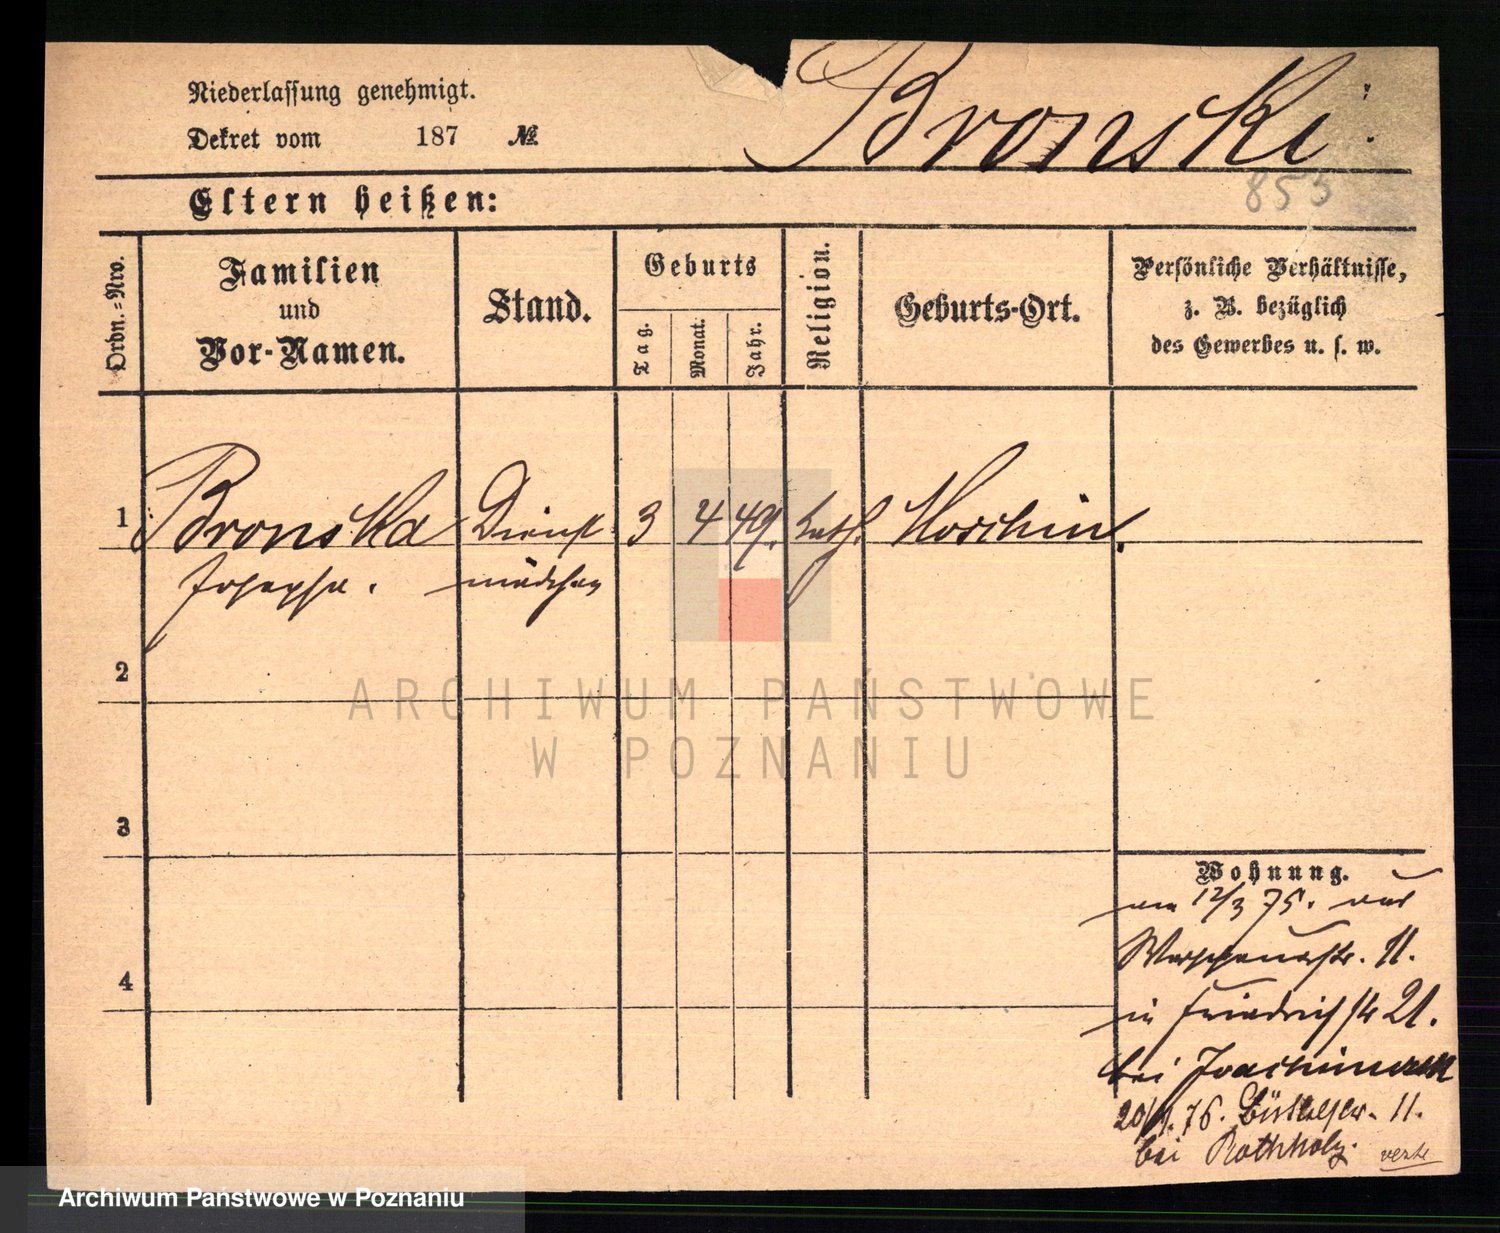 Niederlassung genehmigt.
Dekret vom 187 №
Bronski.
853
Eltern heißen:
Ordn.-Nro.
Familien
und
Vor-Namen.
Stand.
Geburts
Tag.
Monat.
Jahr.
Religion.
Geburts-Ort.
Persönliche Verhältnisse,
z. B. bezüglich
des Gewerbes u. s. w.
1 Bronska Dienst 3 4 49. kath. Moschin.
Josepha. mädchen
2
3
4
Wohnung.
am 12/3 75. aus
11.
in Friedrichstr 21.
bei
76. 11.
bei Rothholz. verte
ARCHIWUM PAŃSTWOWE
W POZNANIU
Archiwum Państwowe w Poznaniu